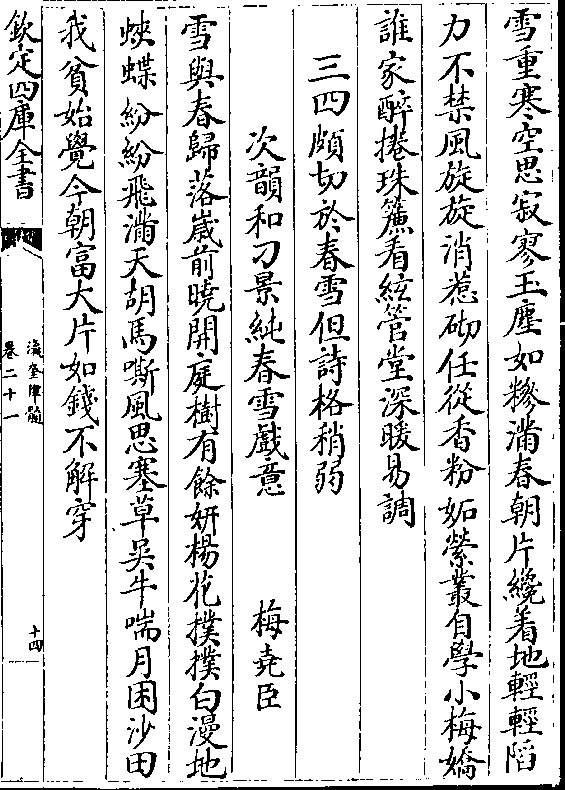 雪重寒空思寂寥玉塵如糝滿春朝片纔着地輕輕陷
力不禁風旋旋消惹砌任從香粉妬縈叢自學小梅嬌
誰家醉捲珠簾看絃管堂深暖易調
三四頗切於春雪但詩格稍弱
次韻和刁景純春雪戲意 梅堯臣
雪與春歸落歲前曉開庭樹有餘妍楊花撲撲白漫地
蛺蝶紛紛飛滿天胡馬嘶風思塞草吳牛喘月困沙田
我貧始覺今朝富大片如錢不解穿
欽定四庫全書
瀛奎律髓
卷二十一
十四